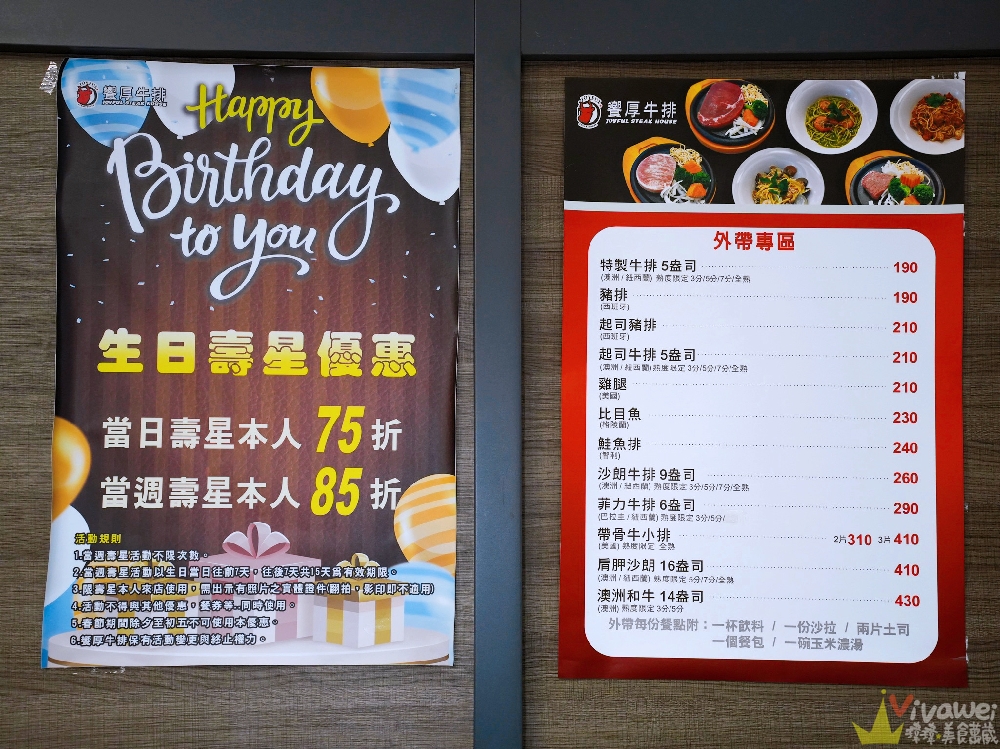 饗厚牛排
JOYFUL STEAK HOUSE
Happy
Birthday
to you
生日壽星優惠
當日壽星本人 75 折
當週壽星本人 85 折
活動規則
1.當週壽星活動不限次數。
2.當週壽星活動以生日當日往前7天，往後7天共15天為有效期限。
3.限壽星本人來店使用，需出示有照片之實體證件(翻拍，影印即不適用)
4.活動不得與其他優惠，餐券等..同時使用。
5.春節期間除夕至初五不可使用本優惠。
6.饗厚牛排保有活動變更與終止權力。
饗厚牛排
JOYFUL STEAK HOUSE
外帶專區
特製牛排 5盎司 190
(澳洲 / 紐西蘭) 熟度限定 3分/5分/7分/全熟
豬排 190
(西班牙)
起司豬排 210
(西班牙)
起司牛排 5盎司 210
(澳洲 / 紐西蘭) 熟度限定 3分/5分/7分/全熟
雞腿 210
(美國)
比目魚 230
(格陵蘭)
鮭魚排 240
(智利)
沙朗牛排 9盎司 260
(澳洲 / 紐西蘭) 熟度限定 3分/5分/7分/全熟
菲力牛排 6盎司 290
(巴拉圭 / 紐西蘭) 熟度限定 3分/5分/
帶骨牛小排 2片310 3片410
(美國) 熟度限定 全熟
肩胛沙朗 16盎司 410
(澳洲 / 紐西蘭) 熟度限定 5分/7分/全熟
澳洲和牛 14盎司 430
(澳洲) 熟度限定 3分/5分
外帶每份餐點附：一杯飲料 / 一份沙拉 / 兩片土司
一個餐包 / 一碗玉米濃湯
Vivawei